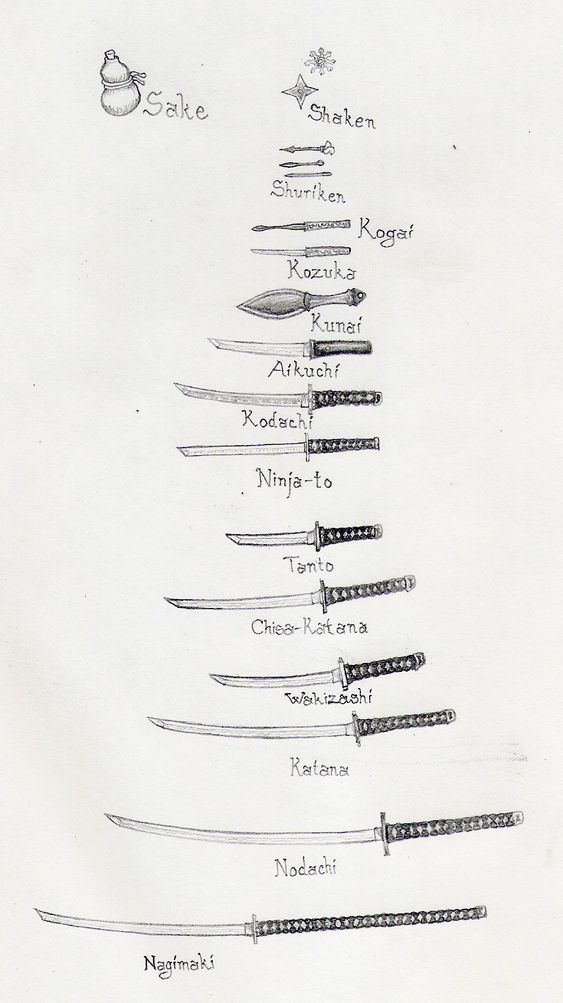 Sake
Shaken
Shuriken
Kogai
Kozuka
Kunai
Aikuchi
Kodachi
Ninja-to
Tanto
Chisa-Katana
Wakizashi
Katana
Nodachi
Nagimaki